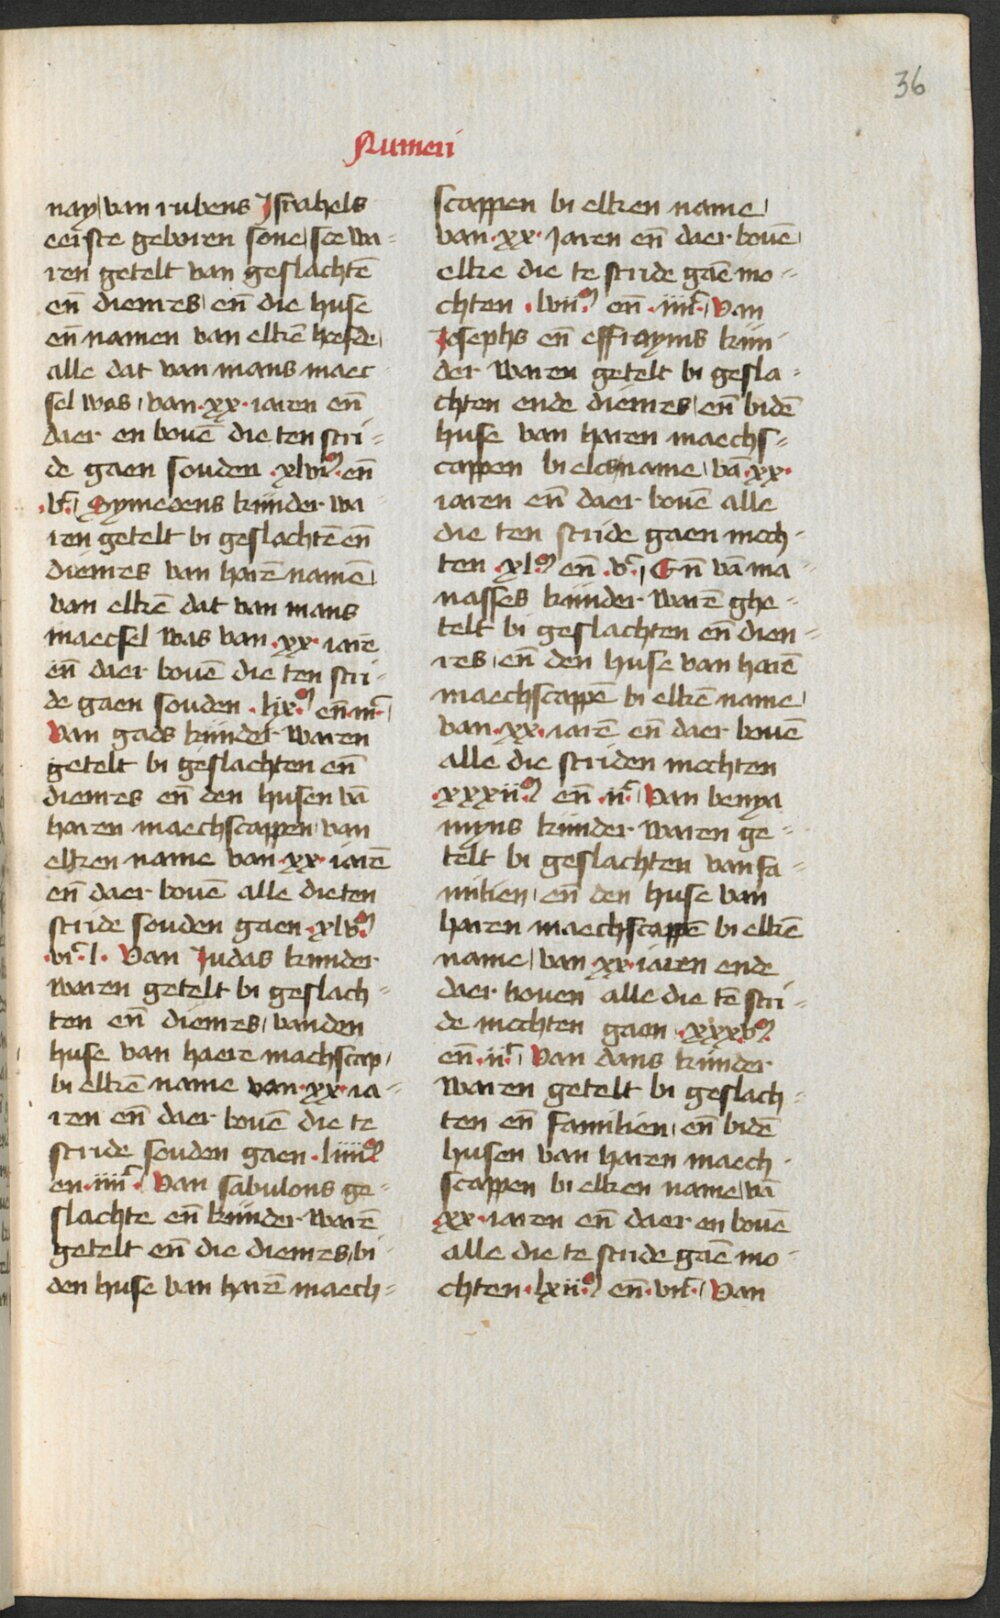 36
Numeri
nay van rubens Israhels
eerste geboren sone sce wa=
ren getelt van geslachtē
eñ dienres eñ die huse
eñ namen van elkē hoefde
alle dat van mans maec
sel was van ·xx· iaren eñ
daer en bouē die ten stri=
de gaen souden ·xlviᵐ· eñ
·vᶜ· Symeoens kinder wa
ren getelt bi geslachtē eñ
dienres van harē namē
van elkē dat van mans
maecsel was van ·xx· iarē
eñ daer bouē die ten stri=
de gaen souden ·lixᵐ· eñ·iiiᶜ·
Van gads kinder waren
getelt bi geslachten eñ
dienres eñ den husen vā
haren maechscappen van
elken name van ·xx· iarē
eñ daer bouē alle die ten
stride souden gaen ·xlvᵐ·
·viᶜ·l· Van Judas kinder
waren getelt bi geslach=
ten eñ dienres vanden
huse van haere machscap
bi elkē name van ·xx· ia=
ren eñ daer bouē die te
stride souden gaen ·lxxiiiiᵐ
en·iiiiᶜ· Van sabulons ge=
slachte eñ kinder warē
getelt eñ die dienres bi
den huse van harē maech=
scappen bi elken name
van ·xx· Jaren eñ daer bouē
elke die te stride gaē mo=
chten ·lviiᵐ· eñ ·iiiiᶜ· Van
Josephs eñ effrayms kin
der waren getelt bi gesla=
chten ende dienres eñ bidē
huse van haren maechs=
cappen bi elcs name vā·xx·
iaren eñ daer bouē alle
die ten stride gaen moch=
ten ·xlᵐ· eñ ·vᶜ· Eñ vā ma=
nasses kinder warē ghe=
telt bi geslachten eñ dien=
res eñ den huse van harē
maechscappē bi elkē name
van ·xx· iarē eñ daer bouē
alle die striden mochten
·xxxiiᵐ· eñ ·iiᶜ· Van benya
myns kinder waren ge=
telt bi geslachten van fa=
milien eñ den huse van
haren maechscappē bi elkē
name van ·xx· iaren ende
daer bouen alle die tē stri=
de mochten gaen ·xxxvᵐ·
eñ ·iiᶜ· Van dans kinder
waren getelt bi geslach=
ten eñ familien eñ bidē
husen van haren maech
scappen bi elken name vā
·xx· iaren eñ daer en bouē
alle die te stride gaē mo=
chten ·lxiiᵐ· eñ·viiᶜ· Van